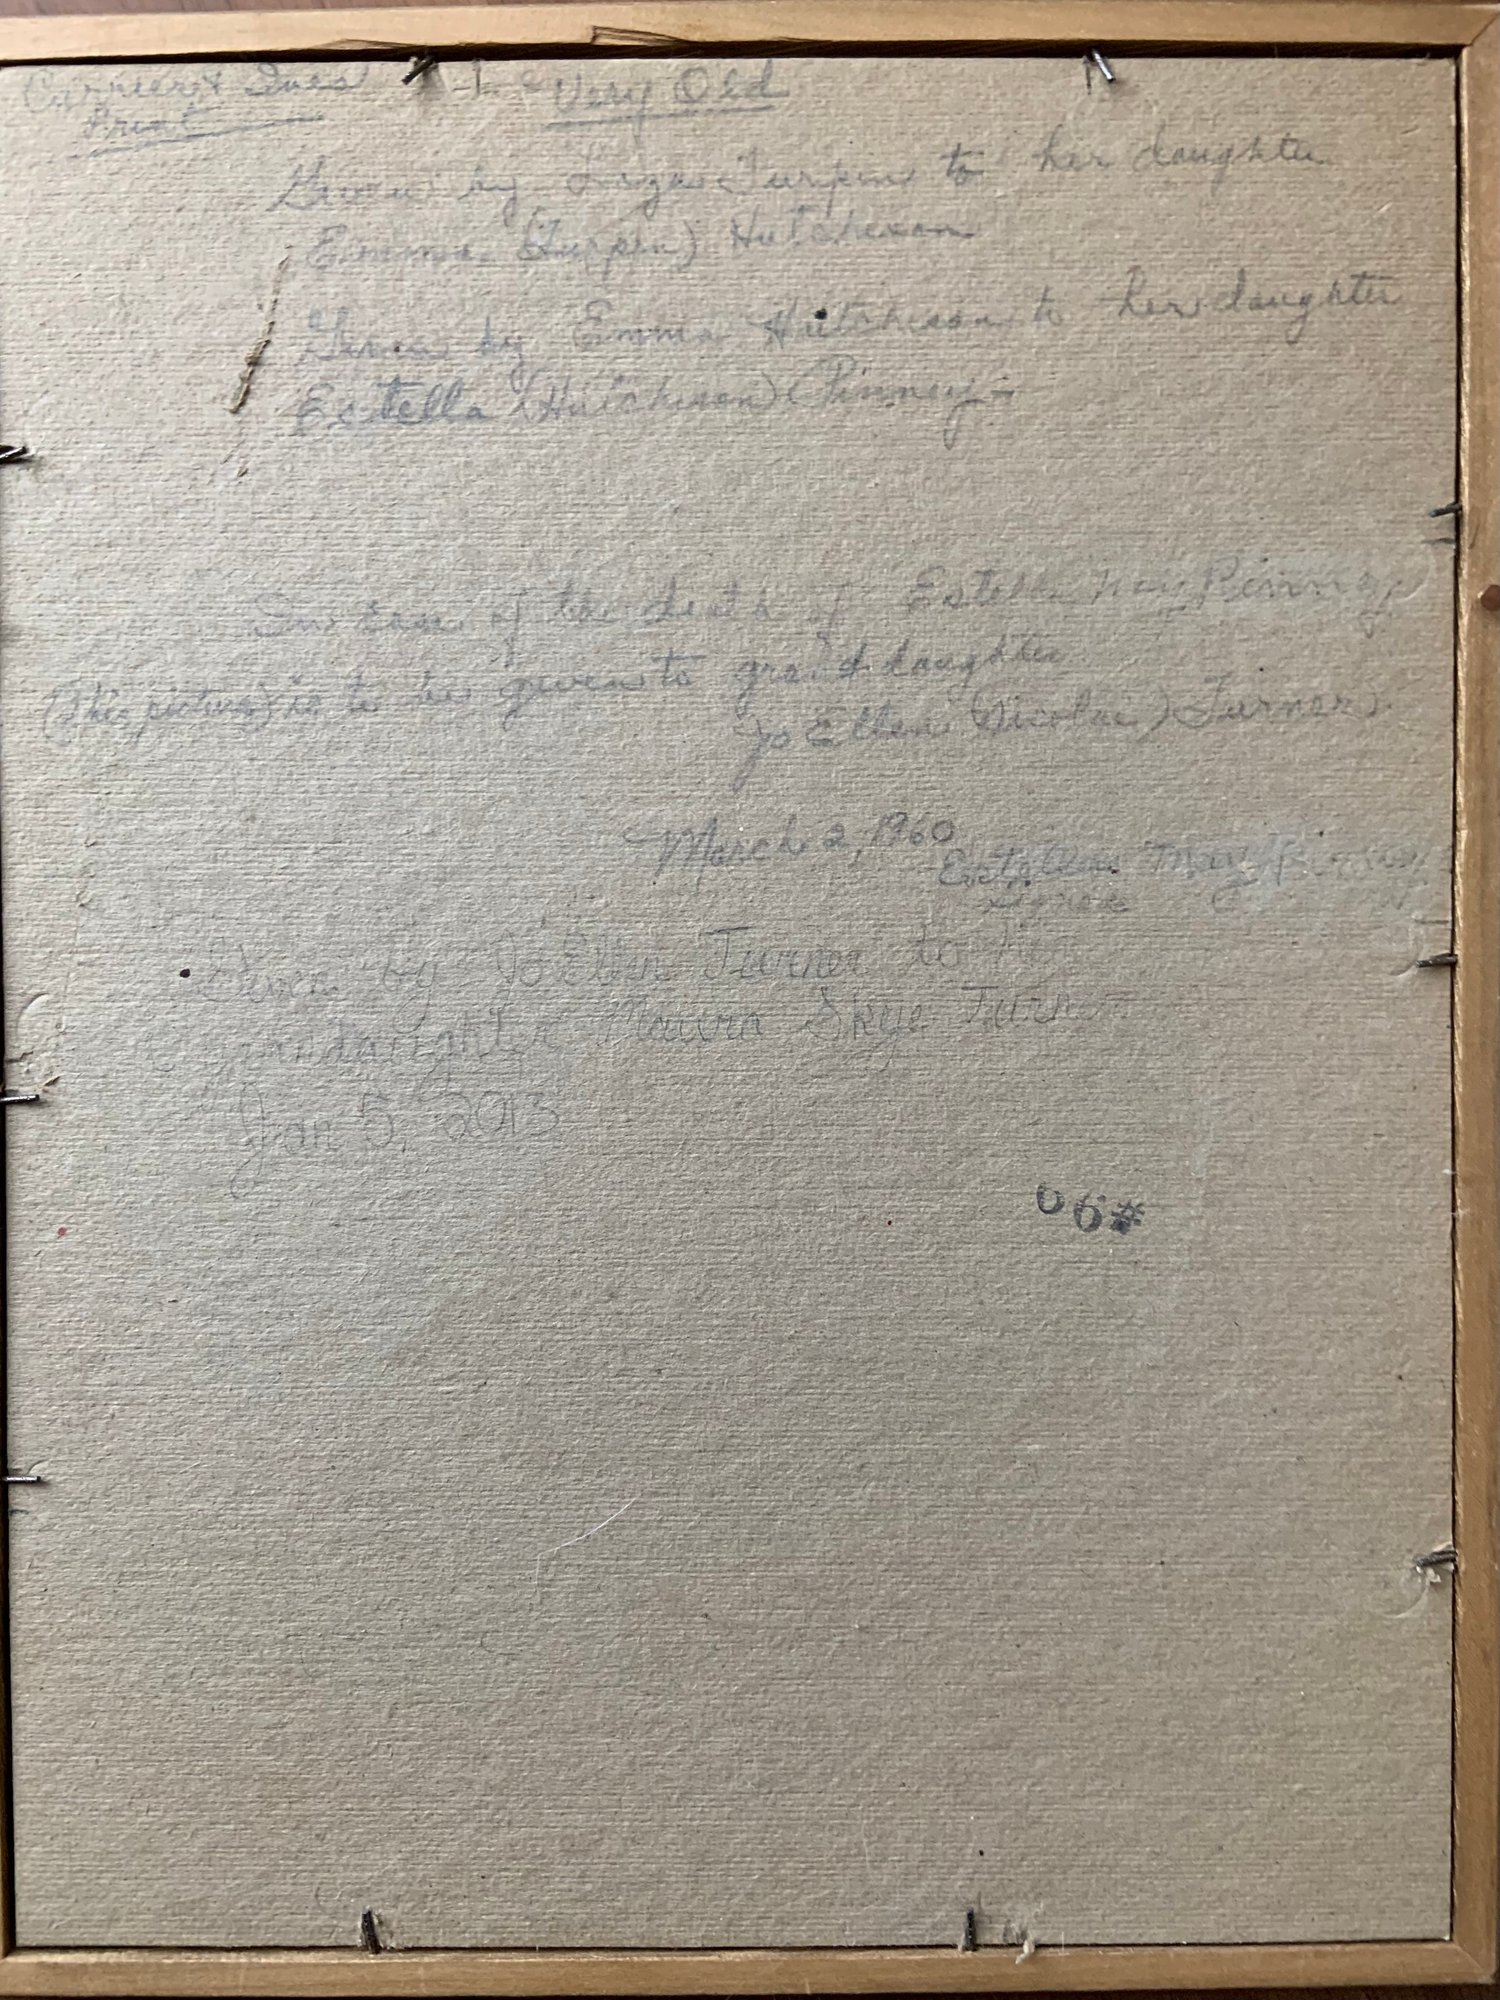 Currier & Ives
Print
Very Old
Given by Turpin to her daughter
Emma (Turpin) Hutcheson
Given by Emma Hutcheson to her daughter
Estella (Hutcheson) (Pinney)
In case of the death of Estella May Pinney,
(this picture) is to be given to grand daughter
Jo Ellen (Nicolac) Turner)
March 2, 1960
Estella May Pinney
signed
Given by Jo Ellen Turner to her
granddaughter Maura Skye Turner
Jan 5, 2013
06#